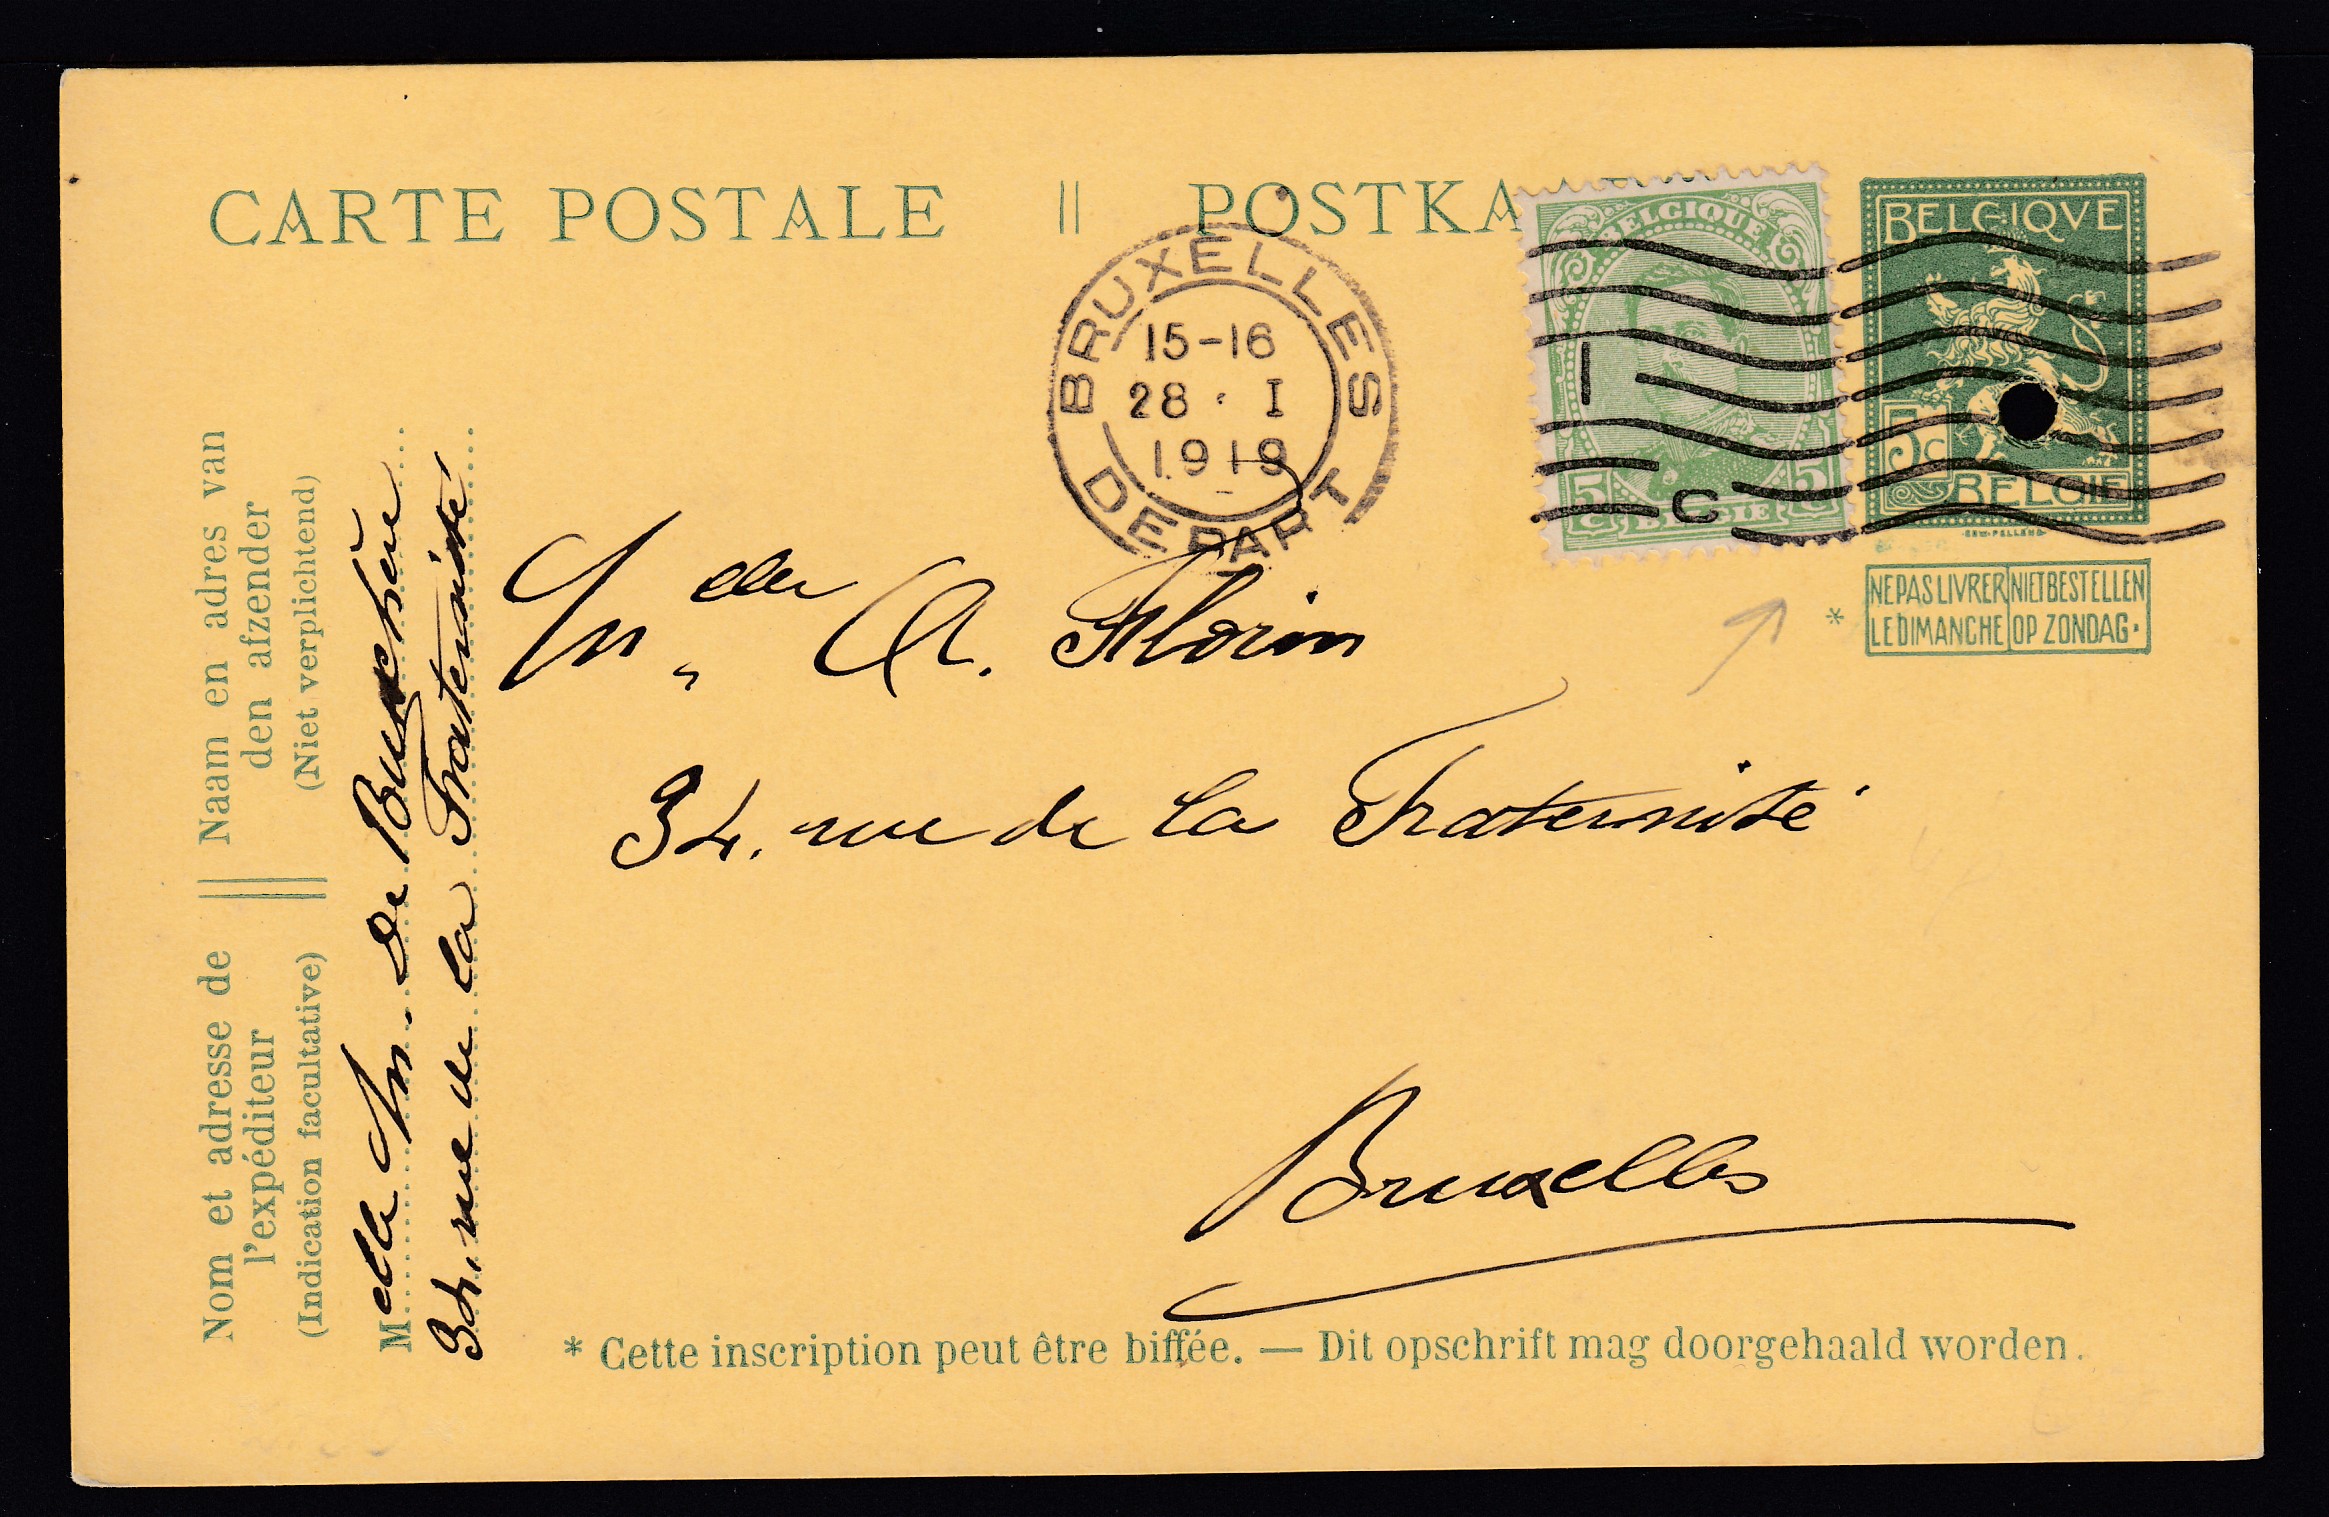 CARTE POSTALE || POSTKA
BRUXELLES
15-16
28 · I
1919
DEPART
BELGIQUE
5c 5c
BELGIE
I
C
BELGIQVE
5c
BELGIE
NE PAS LIVRER LE DIMANCHE
NIET BESTELLEN OP ZONDAG.
*
M der A. Florin
34. rue de la Fraternité
Bruxelles
* Cette inscription peut être biffée. — Dit opschrift mag doorgehaald worden.
Nom et adresse de l'expéditeur
(Indication facultative)
Naam en adres van den afzender
(Niet verplichtend)
Melle M. De
34, rue de la Fraternité